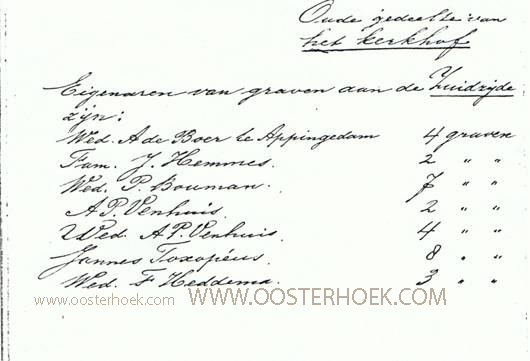 Oude gedeelte van
het kerkhof
Eigenaren van graven aan de Zuidzijde
zijn:
Wed. A de Boer te Appingedam 4 graven
Fam. J. Hemmes. 2 " "
Wed. P. Bouman. 7 " "
A P. Venhuis. 2 " "
Wed. A P. Venhuis. 4 " "
Jannes Toxopéus. 8 " "
Wed. F Heddema. 3 " "
www.oosterhoek.com WWW.OOSTERHOEK.COM